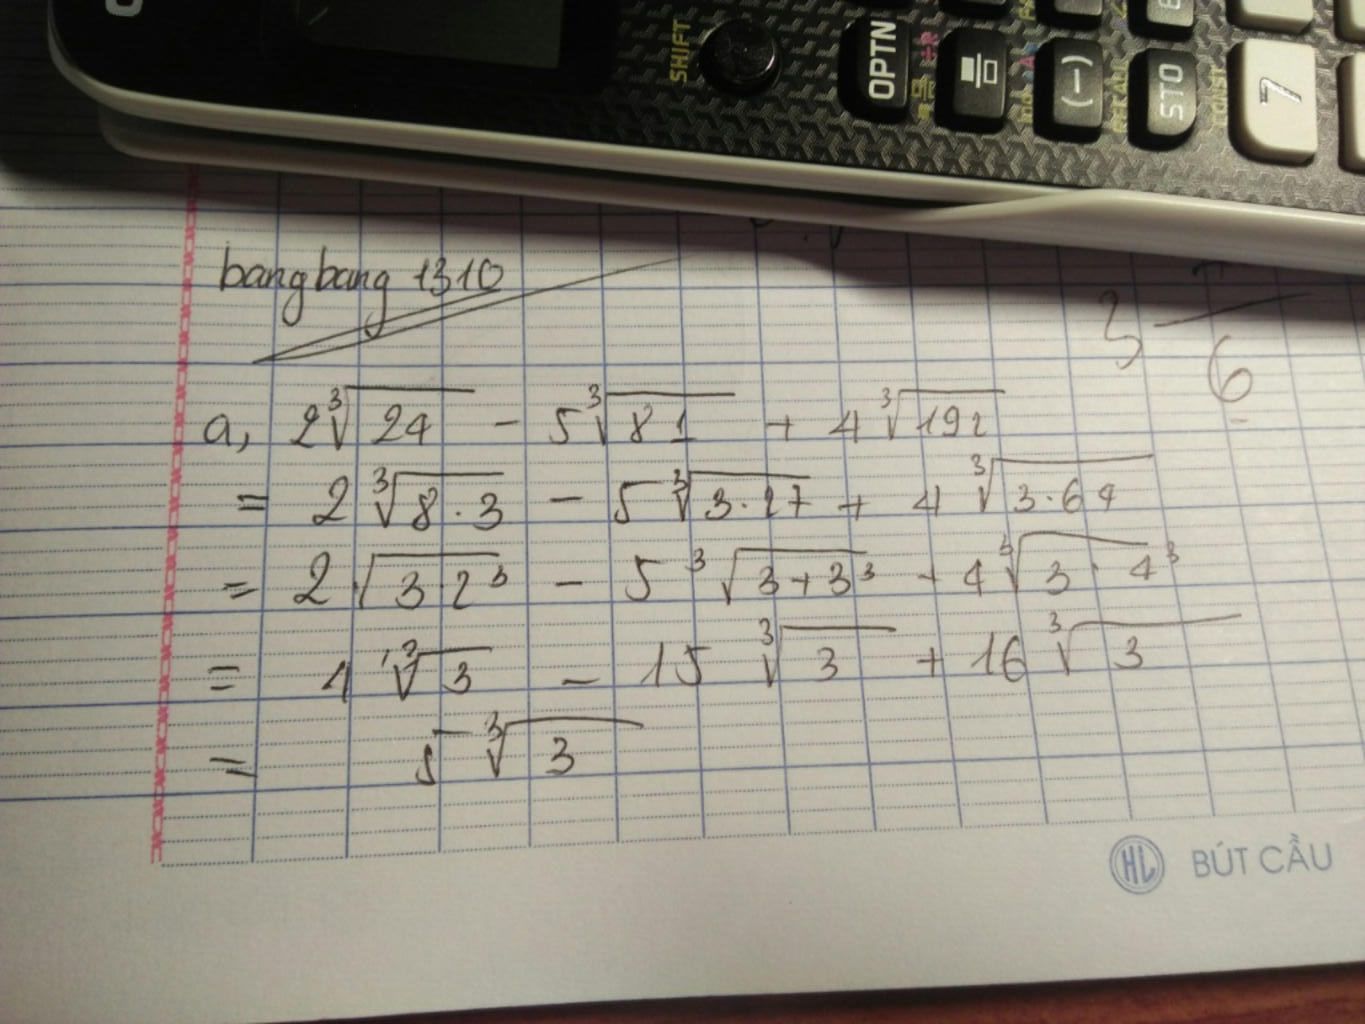 SHIFT
OPTN
(−)
STO
7
bangbang 1310
3 6
a, 2∛24 - 5∛81 + 4∛192
= 2∛8.3 - 5∛3.27 + 4∛3.64
= 2√3.2³ - 5∛3+3³ + 4∛3.4³
= 4∛3 - 15∛3 + 16∛3
= 5∛3
HL BÚT CẦU